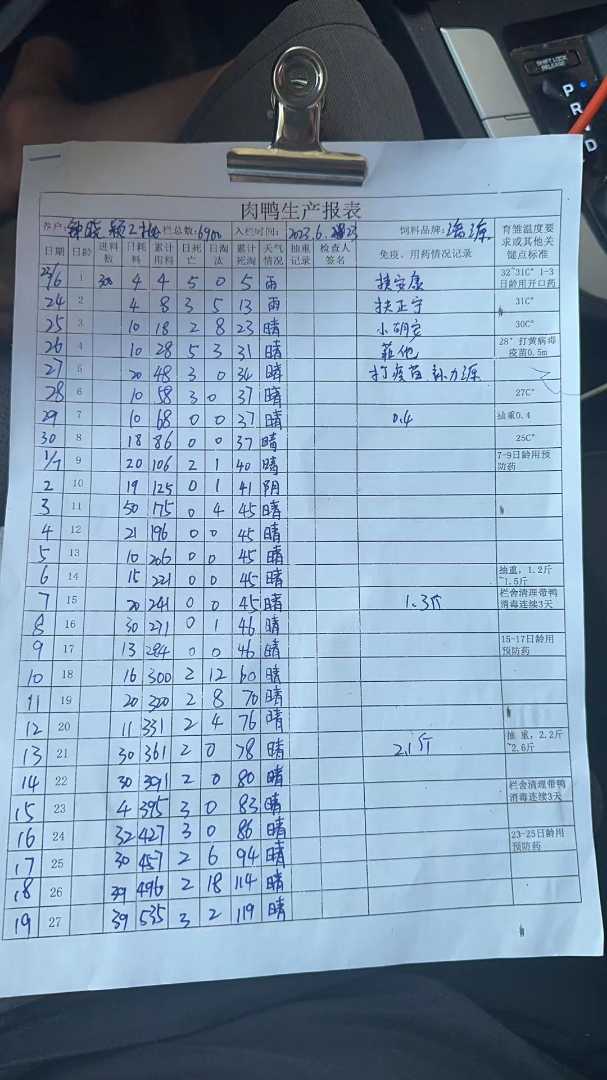 SHIFT LOCK RELEASE
P
R
D
肉鸭生产报表
养户: 钟晓颖2批 栏总数: 6900 入栏时间: 2023.6.23 饲料品牌: 海源 育雏温度要求或其他关键点标准
日期 日龄 进料数 日耗料 累计用料 日死亡 日淘汰 累计死淘 天气情况 抽重记录 检查人签名 免疫、用药情况记录
23/6 1 300 4 4 5 0 5 雨 扶安康 32~31C° 1-3日龄用开口药
24 2 4 8 3 5 13 雨 扶正宁 31C°
25 3 10 18 2 8 23 晴 30C°
26 4 10 28 5 3 31 晴 28° 打黄病毒疫苗0.5m
27 5 20 48 3 0 34 晴 打疫苗
28 6 10 58 3 0 37 晴 27C°
29 7 10 68 0 0 37 晴 0.4 抽重0.4
30 8 18 86 0 0 37 晴 25C°
1/7 9 20 106 2 1 40 晴 7-9日龄用预防药
2 10 19 125 0 1 41 阴
3 11 50 175 0 4 45 晴
4 12 21 196 0 0 45 晴
5 13 10 206 0 0 45 晴
6 14 15 221 0 0 45 晴 抽重，1.2斤~1.5斤
7 15 20 241 0 0 45 晴 1.3斤 栏舍清理带鸭消毒连续3天
8 16 30 271 0 1 46 晴
9 17 13 284 0 0 46 晴 15-17日龄用预防药
10 18 16 300 2 12 60 晴
11 19 20 320 2 8 70 晴
12 20 11 331 2 4 76 晴
13 21 30 361 2 0 78 晴 2.1斤 抽 重，2.2斤~2.6斤
14 22 30 391 2 0 80 晴
15 23 4 395 3 0 83 晴 栏舍清理带鸭消毒连续3天
16 24 32 427 3 0 86 晴
17 25 30 457 2 6 94 晴 23-25日龄用预防药
18 26 39 496 2 18 114 晴
19 27 39 535 3 2 119 晴